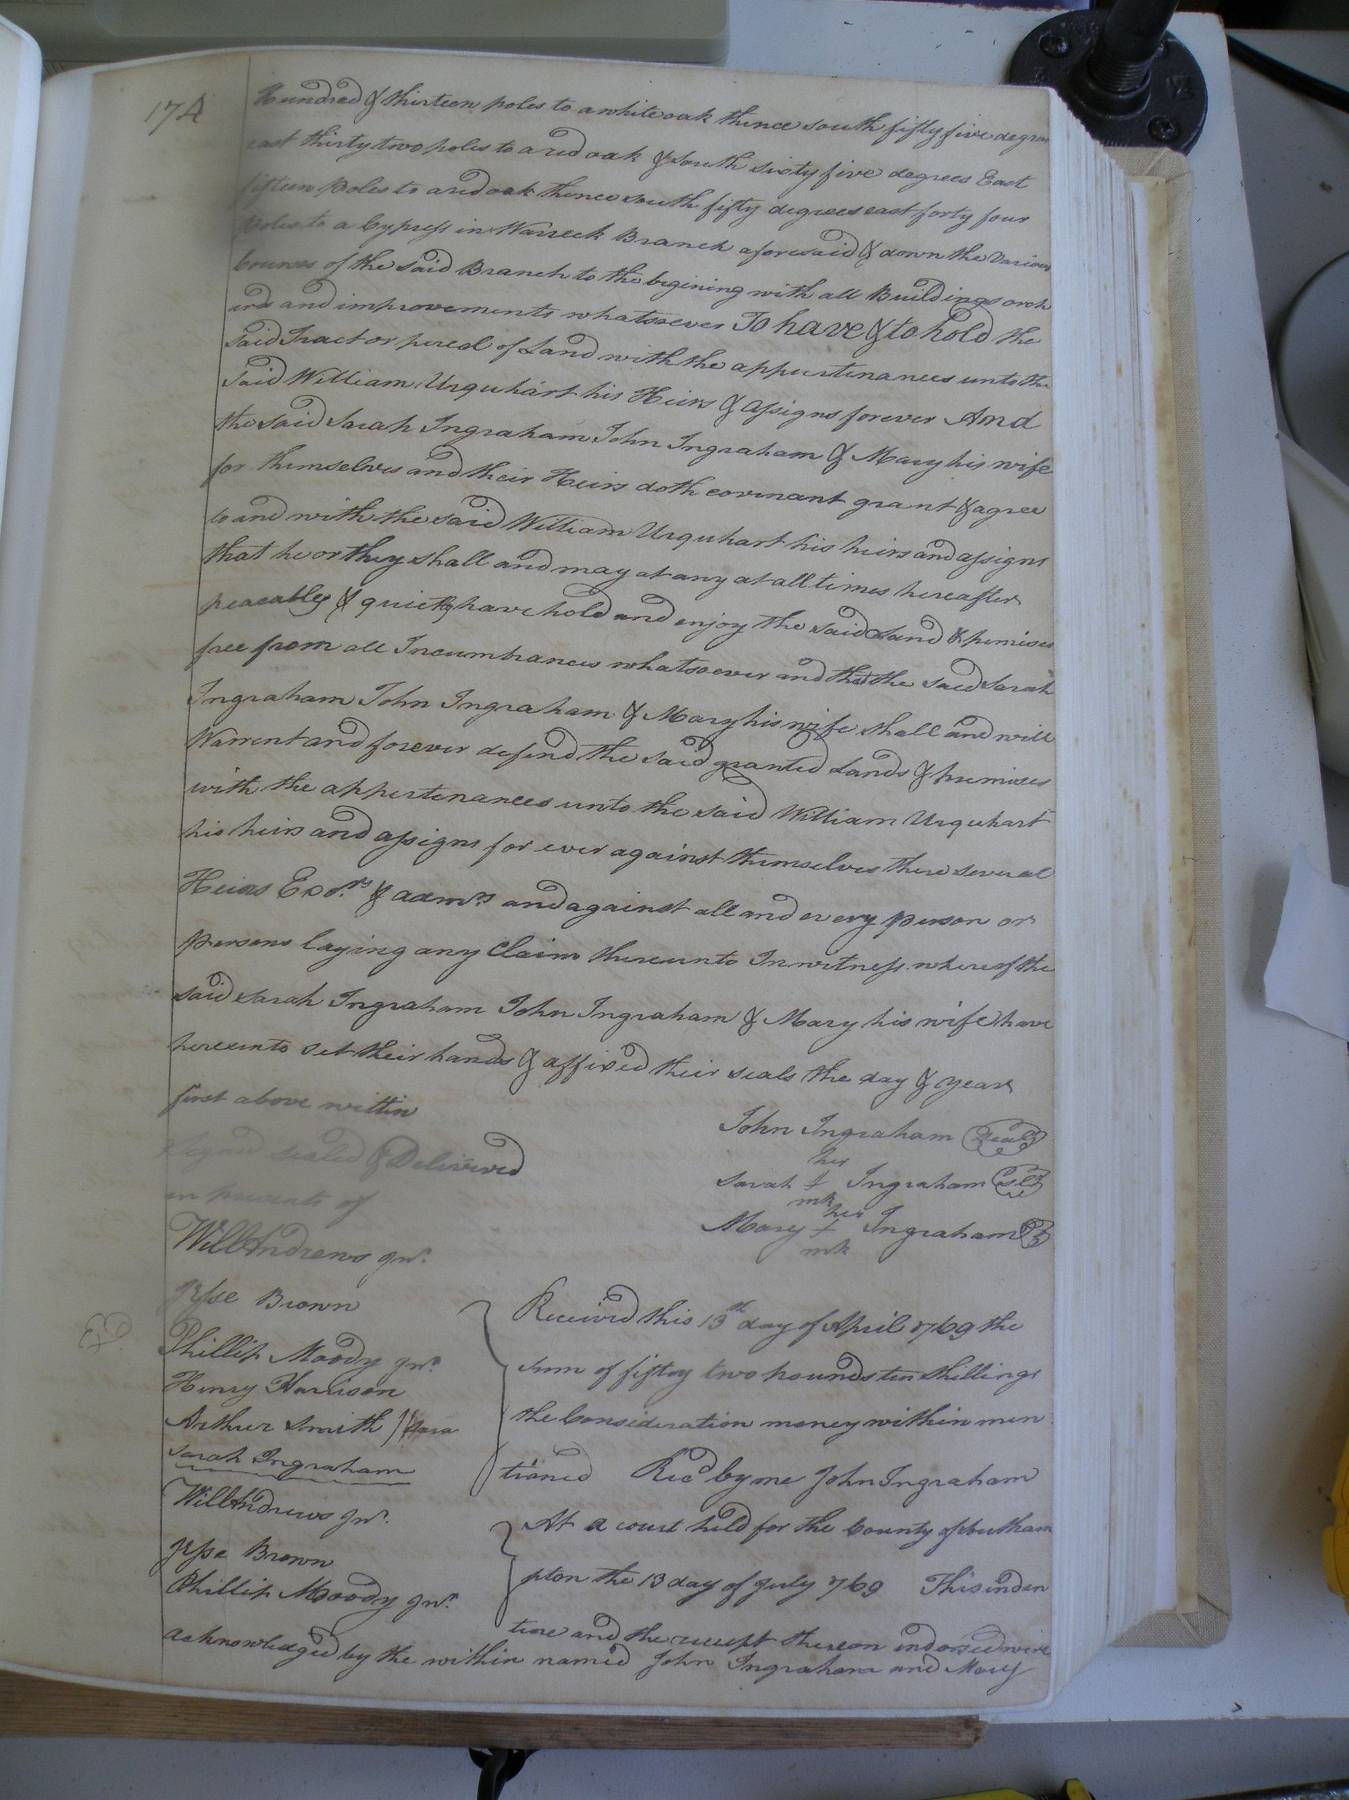 174
Hundred & thirteen poles to a white oak thence south fifty five degrees
east thirty two poles to a red oak & south sixty five degrees East
fifteen Poles to a red oak thence south fifty degrees east forty four
poles to a Cypress in Warreck Branch aforesaid & down the Various
Courses of the said Branch to the begining with all Buildings orch
ards and improvements whatsoever To have & to hold the
said Tract or percel of Land with the appurtenances unto the
said William Urquhart his Heirs & assigns forever And
the said Sarah Ingraham John Ingraham & Mary his wife
for themselves and their Heirs doth covinant grant & agree
to and with the said William Urquhart his heirs and assigns
that he or they shall and may at any at all times hereafter
peaceably & quietly have hold and enjoy the said Land & premises
free from all Incumbrances whatsoever and that the said Sarah
Ingraham John Ingraham & Mary his wife shall and will
Warrent and forever defend the said granted Lands & premises
with the appertenances unto the said William Urquhart
his heirs and assigns for ever against themselves there several
Heirs Exors. & admrs. and against all and every person or
persons laying any Claim thereunto In witness whereof the
said Sarah Ingraham John Ingraham & Mary his wife have
hereunto set their hands & affixed their seals the day & year
first above written
John Ingraham Seal
Signed sealed & Delivered
her
Sarah + Ingraham
mk
in presents of
her
Mary + Ingraham
mk
Will Andrews Jnr.
Jesse Brown
Received this 13th day of April 1769 the
Phillip Moody Jnr.
sum of fifty two pounds ten Shillings
Henry Harrison
Arthur Smith
the Consideration money within men
Sarah Ingraham
tioned Recd by me John Ingraham
Will Andrews Jnr.
At a court held for the County of Southam
Jesse Brown
pton the 13 day of July 1769 This inden
Phillip Moody Jnr.
ture and the receipt thereon indorsed were
acknowledged by the within named John Ingraham and Mary